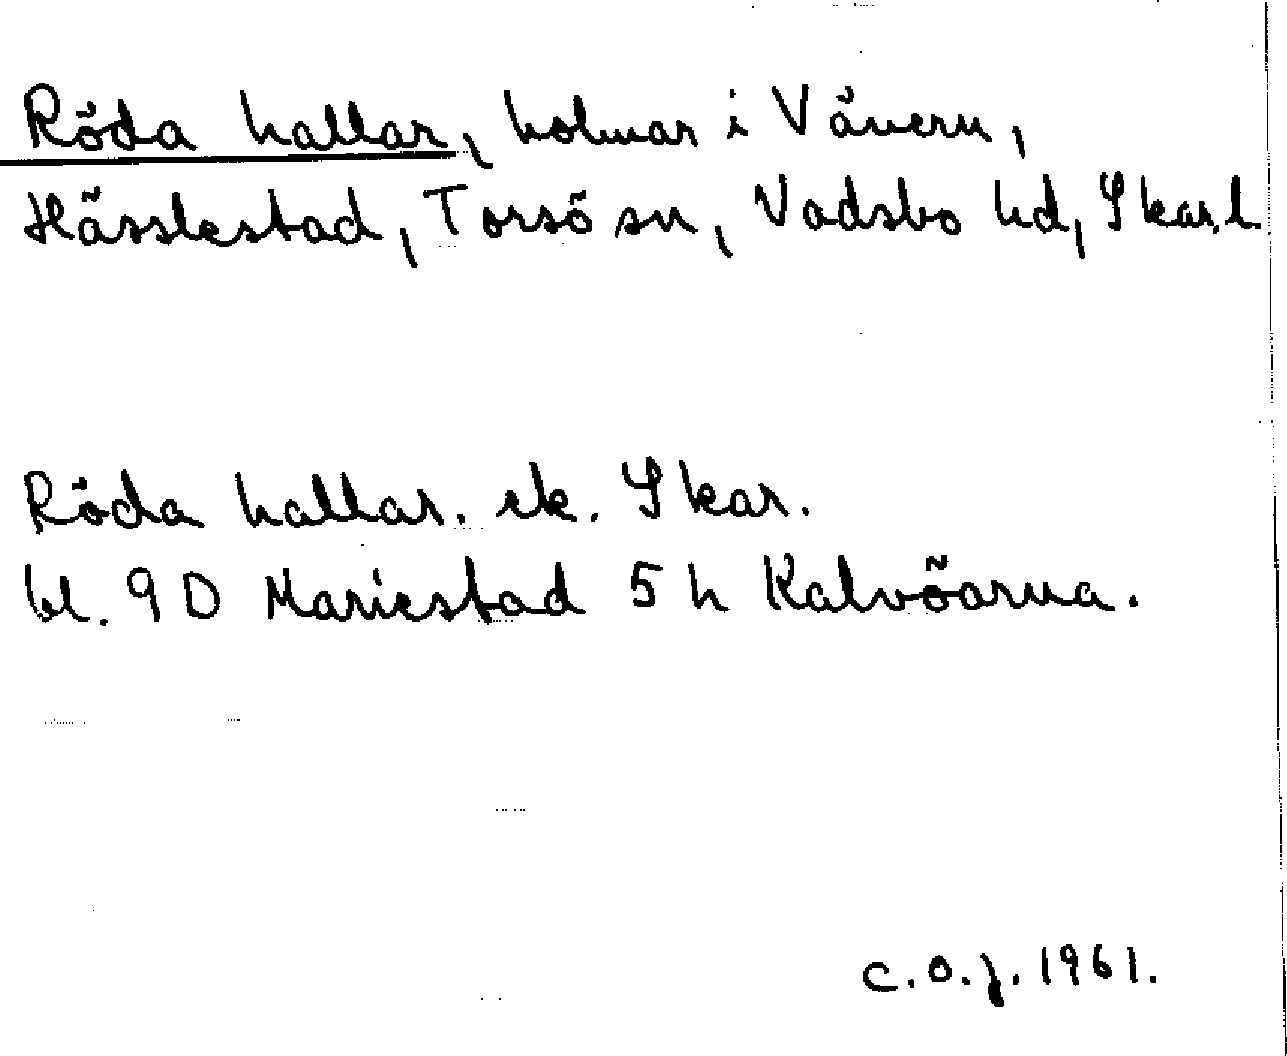 Röda hallar, holmar i Vänern,
Hässlestad, Torsö sn, Vadsbo hd, Skar.l.
Röda hallar. ek. Skar.
bl. 9D Mariestad 5h Kalvöarna.
C.O.J. 1961.